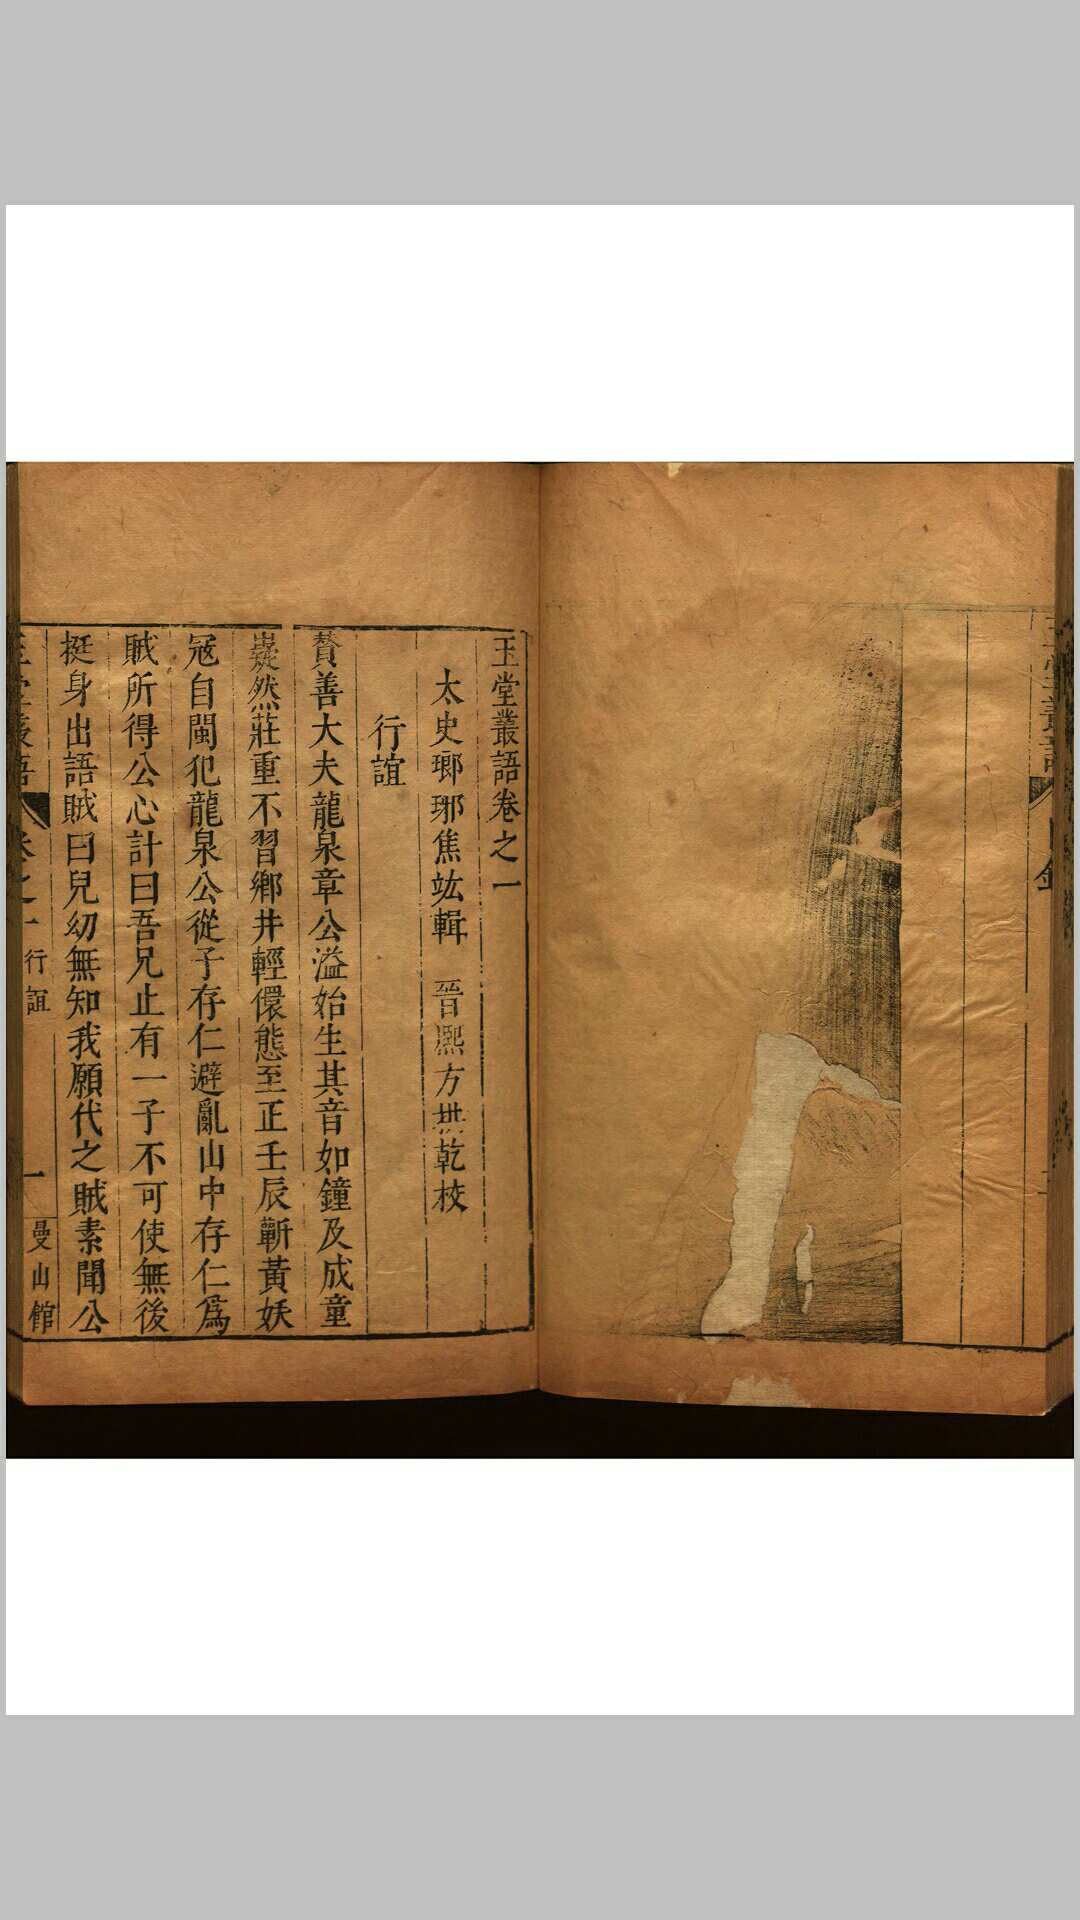 玉堂叢語
目錄
玉堂叢語卷之一
太史瑯琊焦竑輯 晉熙方拱乾校
行誼
贊善大夫龍泉章公溢始生其音如鐘及成童
嶷然莊重不習鄉井輕儇態至正壬辰蘄黃妖
冦自閩犯龍泉公從子存仁避亂山中存仁爲
賊所得公心計曰吾兄止有一子不可使無後
挺身出語賊曰兒幼無知我願代之賊素聞公
玉堂叢語 卷之一 行誼 一 曼山館